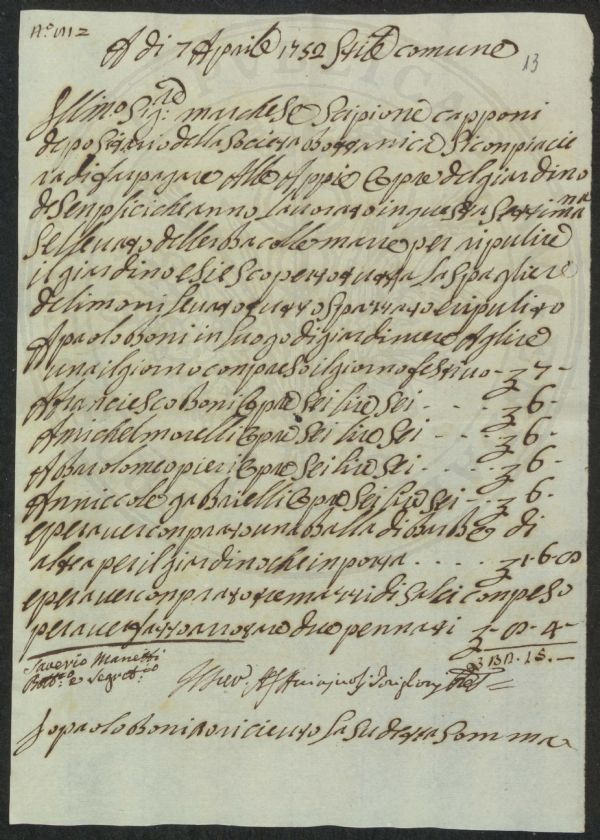 N.º 112
A di 7 Aprile 1752 Stile comune
13
Ill.mo Sig.re marchese Scipione capponi
depositario della Società bottanica Si conpiacie
ra di far pagare Alle Appie Opre del giardino
di Senplici che anno lavorato in questa Settima.na
Se llevato dellerba colle mane per ripulire
il giardino e si e Scoperto tutta la Spagliera
de limoni levato tutto Spazzato e ripulito
A paolo Boni in luogo di giardinere A glire
una il giorno conpreso il giorno festivo - £ 7 -
A franciesco Boni Opre Sei lire Sei - - - £ 6 -
A michel morelli Opre Sei lire Sei - - - £ 6 -
A Bartolomeo pieri Opre Sei lire Sei - - £ 6 -
A nniccole gabrielli Opre Sei lire Sei - - £ 6 -
e per aver conprato una balla di barbe di
altea per il giardino che inporta . . . . £ 1-6-8
e per aver conprato tre mazzi di Salci con peso
per aver fatto arrotare due pennati £ - 8 - 4 -
15. -
Saverio Manetti
Bott.co e Segret.rio
Io paolo Boni o riceuto la Sudetta Somma